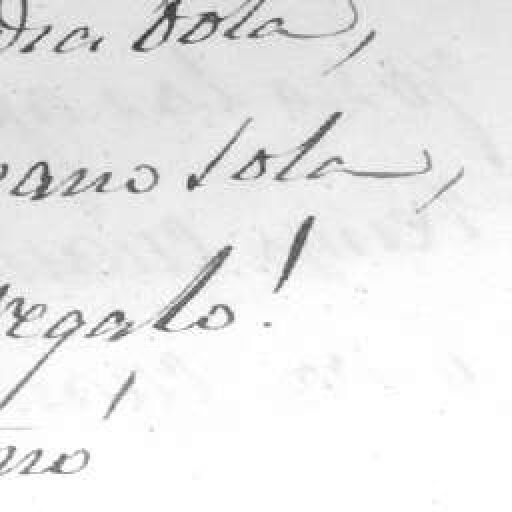 dia bola,
ano sola,
regalo!
no